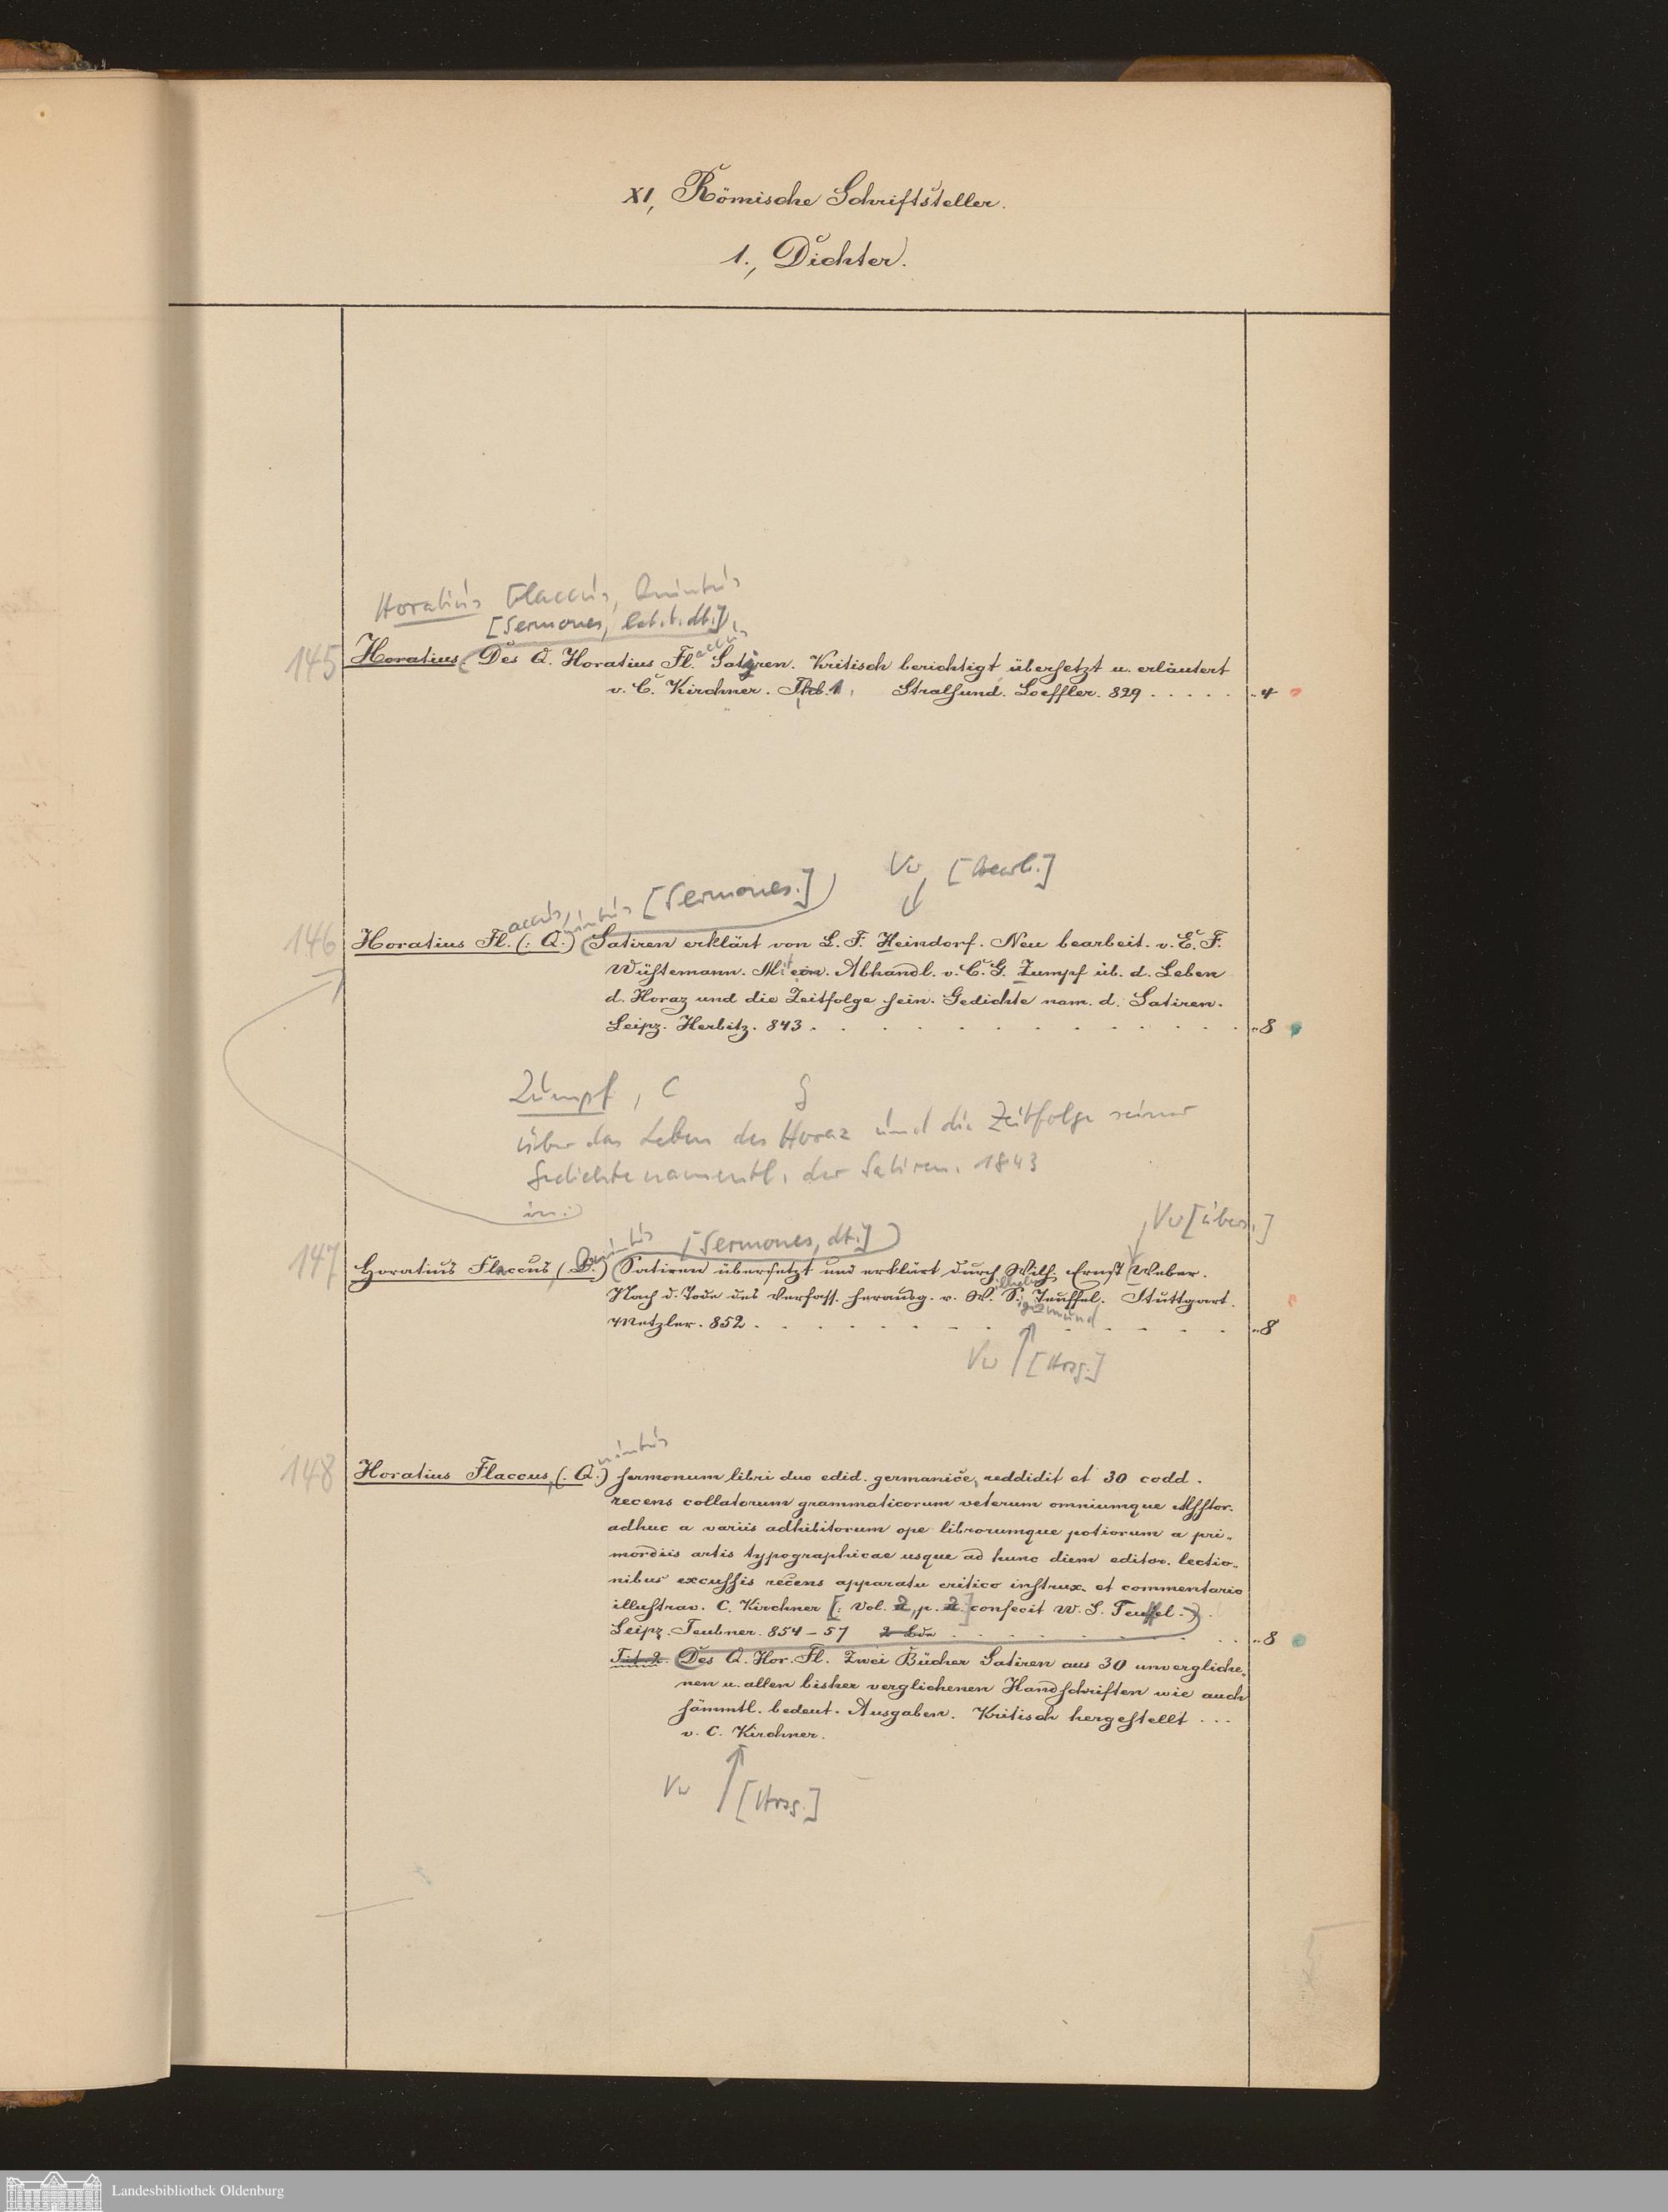 XI, Römische Schriftsteller.
1., Dichter.
Horatius Flaccus, Quintus
[Sermones, lat. u. dt.]
145 Horatius. Des Q. Horatius Fl.accus Satyren. Kritisch berichtigt, übersetzt u. erläutert
v. C. Kirchner. Th. 1. Stralsund. Loeffler. 829 . . . . . „4
Vw [Bearb.]
accus, uintus [Sermones.]
146 Horatius Fl. (: Q.) Satiren erklärt von L. F. Heindorf. Neu bearbeit. v. E. F.
Wüstemann. Mit ein. Abhandl. v. C. G. Zumpf üb. d. Leben
d. Horaz und die Zeitfolge sein. Gedichte nam. d. Satiren.
Leipz. Herbitz. 843 . . . . . . . . . . . . „8
Zumpf, C G
über das Leben des Horaz und die Zeitfolge seiner
Gedichte namentl. der Satiren. 1843
in:
Vw [übers.]
uintus [Sermones, dt.]
147 Horatius Flaccus, (Q.) Satiren übersetzt und erklärt durch Wilh. Ernst Weber.
Nach d. Tode des Verfass. herausg. v. W.ilhelm S.igismund Teuffel. Stuttgart.
Metzler. 852 . . . . . . . . . . . . „8
Vw [Hrsg.]
uintus
148 Horatius Flaccus, (: Q.) sermonum libri duo edid. germanice reddidit et 30 codd.
recens collatorum grammaticorum veterum omniumque Msstor.
adhuc a variis adhibitorum ope librorumque potiorum a pri-
mordiis artis typographicae usque ad hunc diem editor. lectio-
nibus excussis recens apparatu critico instrux. et commentario
illustrav. C. Kirchner [: Vol. 2, p. 2.] confecit W. S. Teuffel.)
Leipz. Teubner. 854–57 2 Bde . . . . . . . . „8
Tit. 2. Des Q. Hor. Fl. Zwei Bücher Satiren aus 30 unvergliche-
nen u. allen bisher verglichenen Handschriften wie auch
sämmtl. bedeut. Ausgaben. Kritisch hergestellt ...
v. C. Kirchner.
Vw [Hrsg.]
Landesbibliothek Oldenburg